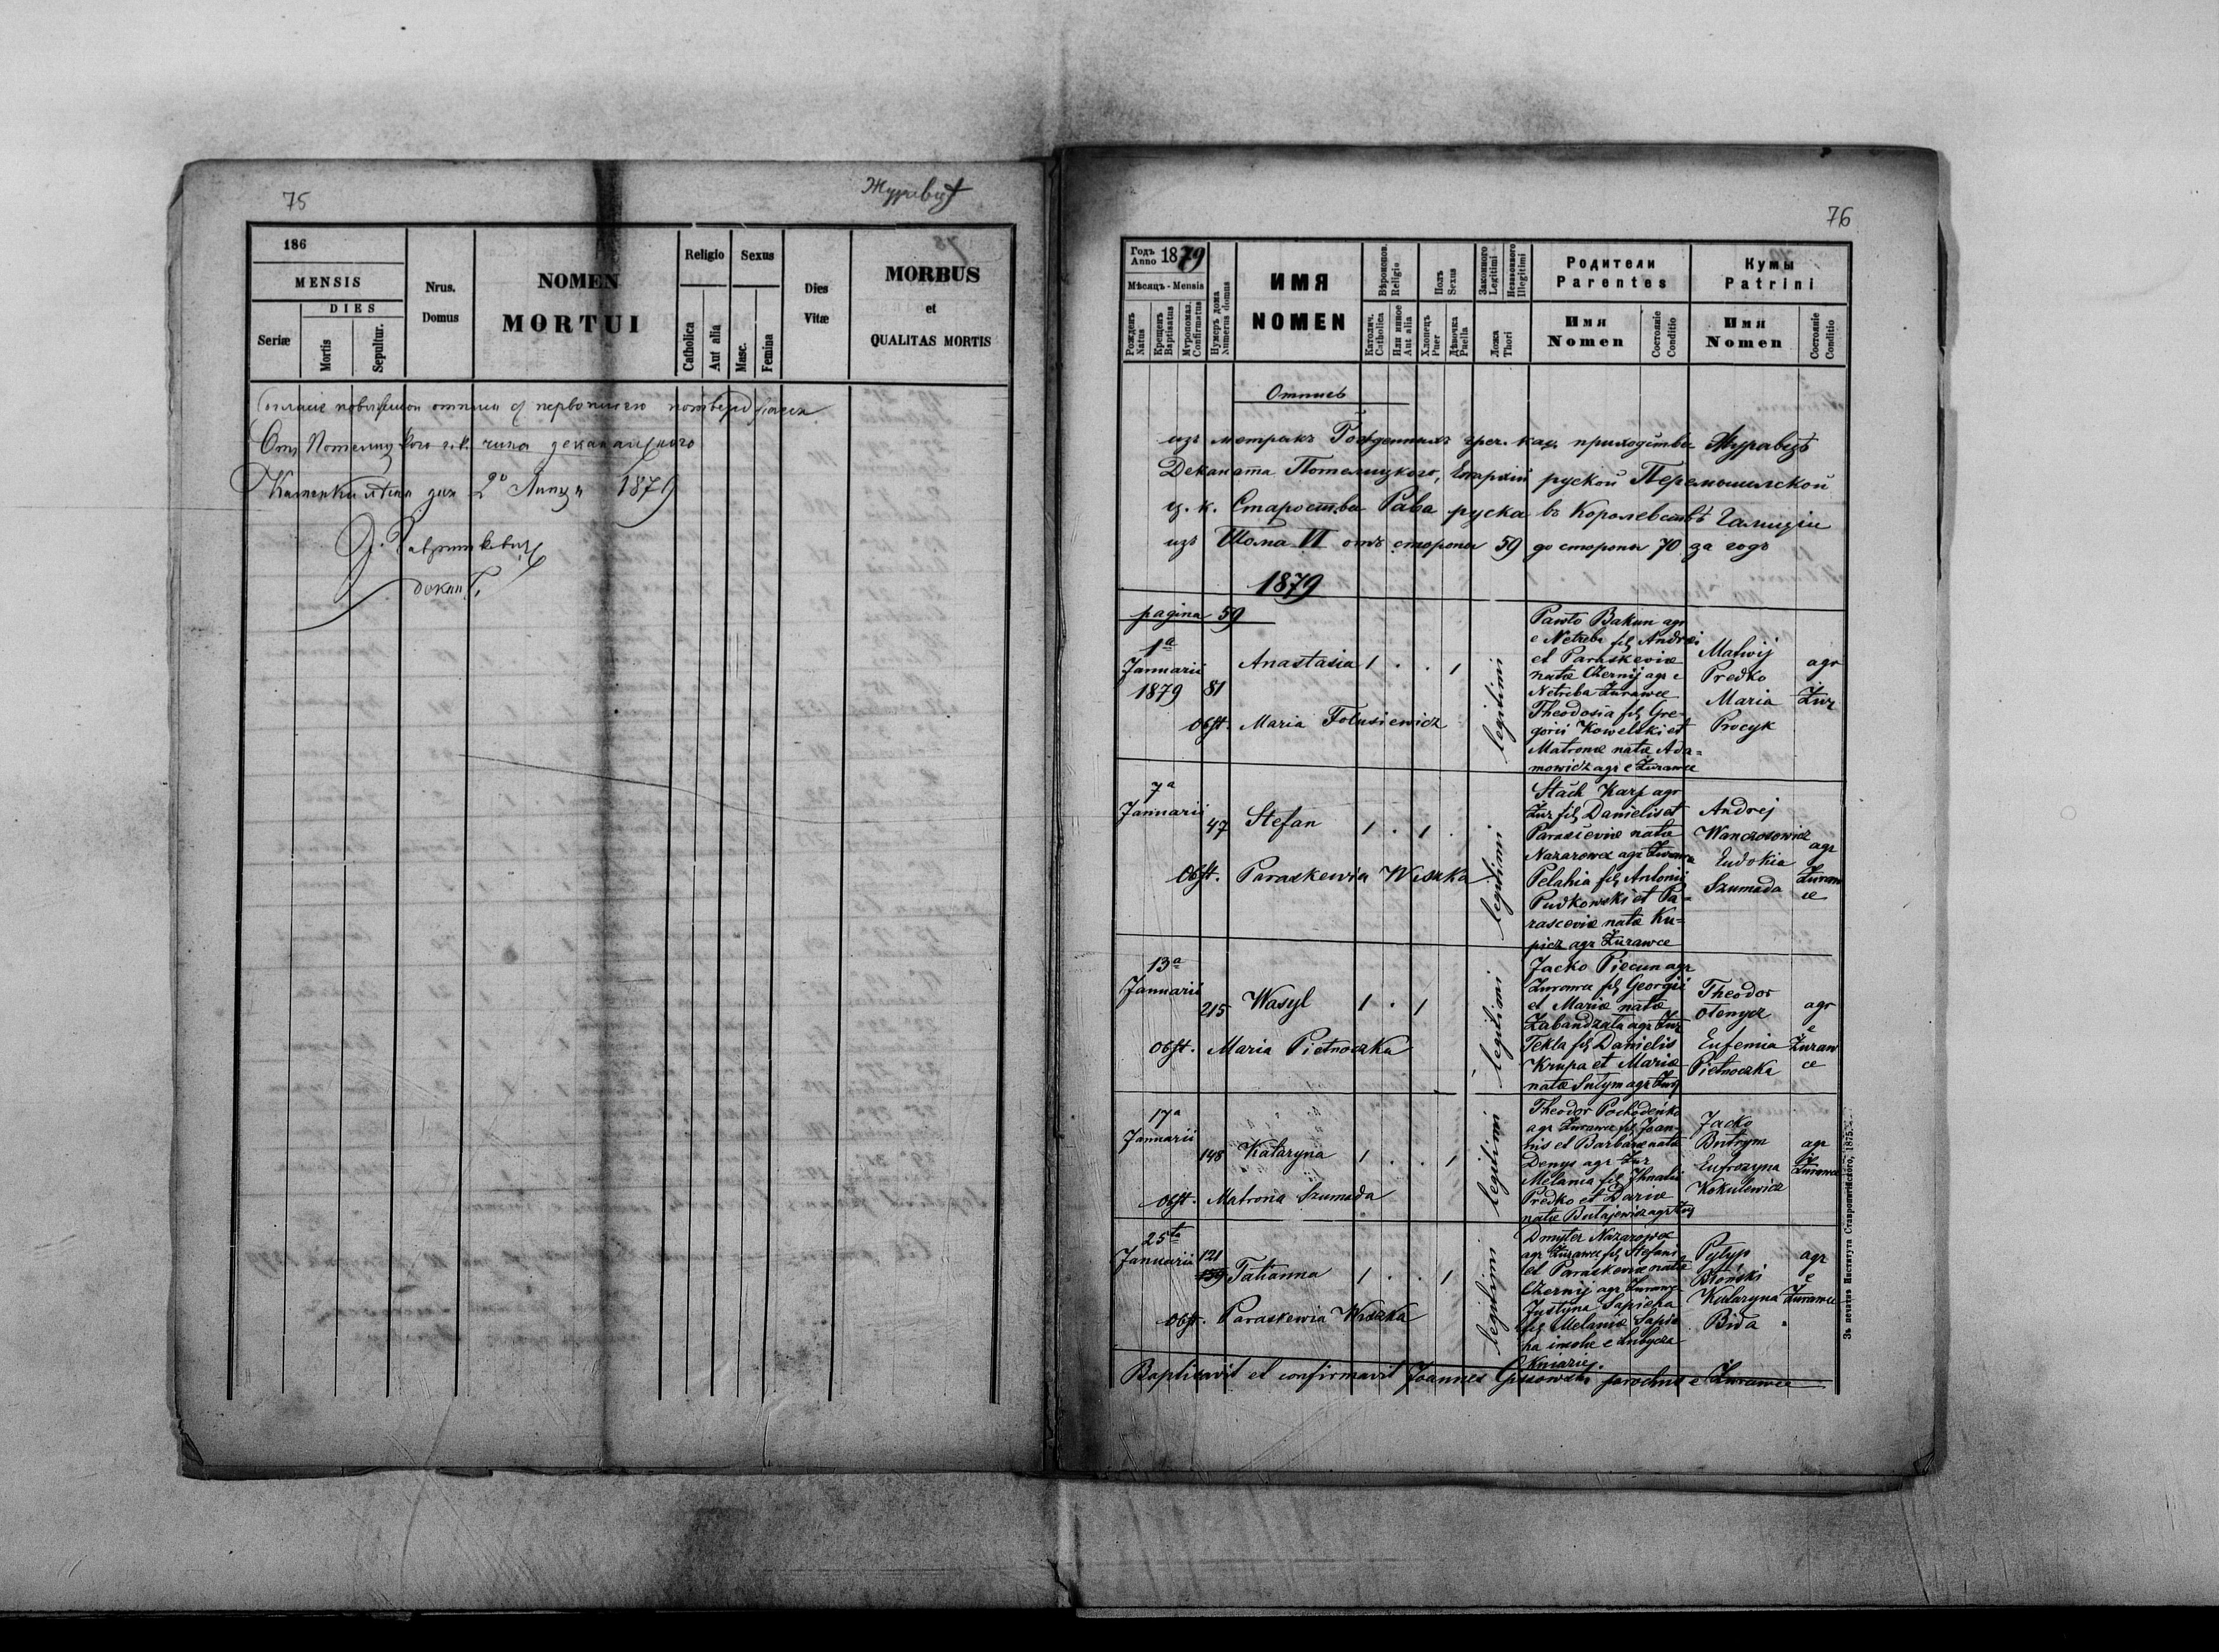 75
Журавцѣ
186
MENSIS
DIES
Seriæ
Mortis
Sepultur.
Nrus.
Domus
NOMEN
MORTUI
Religio
Catholica
Aut alia
Sexus
Masc.
Femina
Dies
Vitæ
MORBUS
et
QUALITAS MORTIS
отписи
Отъ чина
дня 2º Липця 1879
декан
76
Годъ
Anno 1879
Мѣсяцъ - Mensis
Рожденъ
Natus
Крещенъ
Baptisatus
Мѵропомаз.
Confirmatus
Нумеръ дома
Numerus domus
ИМЯ
NOMEN
Вѣроисповѣд.
Religio
Католич.
Catholica
Или инное
Aut alia
Полъ
Sexus
Хлопецъ
Puer
Дѣвочка
Puella
Законного
Legitimi
Незаконного
Illegitimi
Ложа
Thori
Родители
Parentes
Имя
Nomen
Состояніе
Conditio
Кумы
Patrini
Имя
Nomen
Состояніе
Conditio
Отпись
изъ метрикъ Рожденныхъ греч. кат. приходства Журавцѣ
Деканата Потелицкого, Епархіи руской Перемышльской
ц. к. Староства Рава руска въ Королевствѣ Галиціи
изъ Тома VI отъ стороны 59 до стороны 70 за годъ
1879
pagina 59
1a
Januarii
1879
81
Anastasia 1 . . 1
Obst. Maria Folusiewicz
legitimi
Pawło Bakun agr
e Netreba fil Andrei
et Paraskeviæ
natæ Czernij agr e
Netreba Żurawce
Theodosia fil Gre-
gorii Kowelski et
Matronæ natæ Ada=
mowicz agr e Żurawce
Matwij
Predko
Maria
Procyk
agr
Żur
7a
Januarii
47
Stefan 1 . 1 .
Obst. Paraskewia Wiszka
legitimi
Stach Karp agr
Żur fil Danielis et
Parasceviæ natæ
Nazarowec agr Żurawce
Pelahia fil Antonij
Pudkowski et Pa=
rasceviæ natæ Ku=
picz agr Żurawce
Andrej
Eudokia
Szumada
agr
Żuraw
ce
13a
Januarii
215
Wasyl 1 . 1
Obst. Maria Pietnoczka
legitimi
Jacko Piecun agr
Żurawce fil Georgii
et Mariæ natæ
Zabandzała agr Żur
Tekla fil Danielis
Krupa et Mariæ
natæ Sutym agr Żur
Theodor
Otenycz
Eufemia
Pietnoczka
agr
e
Żuraw
ce
17a
Januarii
148
Kataryna 1 . . 1
Obst. Matrona Szumada
legitimi
Theodor Pochodeńko
agr Żurawce fil Joan-
nis et Barbaræ natæ
Denys agr Żur
Melania fil Ihnatii
Predko et Dariæ
natæ Butajewicz agr Żur
Jacko
Butrym
Eufrozyna
Kokulewicz
agr
Żurawce
25ta
Januarii
121
Tatianna 1 . . 1
Obst. Paraskewia Wiszka
legitimi
Dmyter Nazarowec
agr Żurawce fil Stefani
et Paraskeviæ natæ
Czernij agr Żurawce
Justyna Sapieha
fil Melaniæ Sapie
ha e Lubycza
Kniazie.
Pyłyp
Błoński
Kataryna
Bida
agr
e
Żurawce
Baptisavit et confirmavit Joannes parochus e Żurawce
Зъ печатнѣ Института Ставропигійского, 1875.